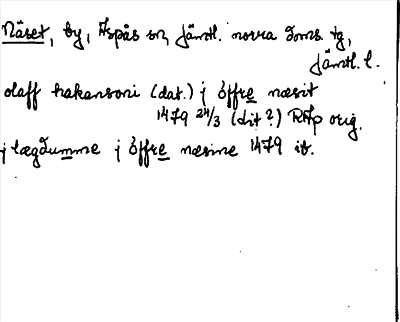 Näset, by, Aspås sn, Jämtl. norra doms tg,
Jämtl. l.
olaff hakansoni (dat.) j öffre næsit
1479 24/3 (dit?) RAp orig.
j lægdumme j öffre næsine 1479 ib.